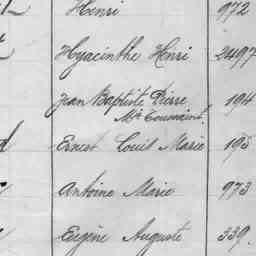 Henri 972
Hyacinthe Henri 2497
Jean Baptiste Pierre 194
Mie Toussaint
Ernest Louis Marie 195
Antoine Marie 973
Eugène Auguste 339.